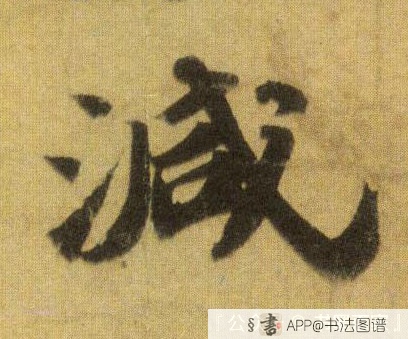 減
§書 APP@书法图谱